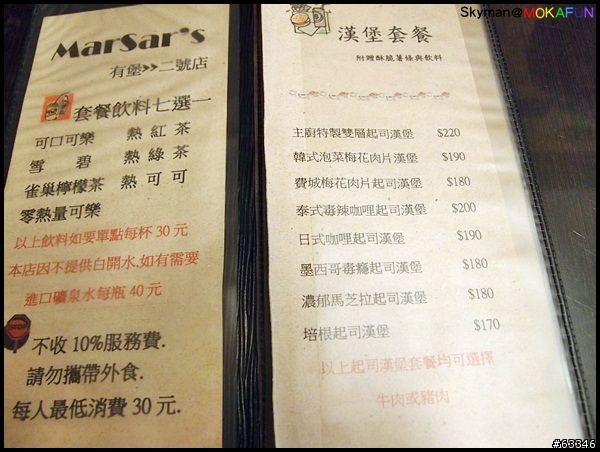 Skyman@MOKAFUN
MarSar's
有堡>>二號店
套餐飲料七選一
可口可樂 熱紅茶
雪碧 熱綠茶
雀巢檸檬茶 熱可可
零熱量可樂
以上飲料如要單點每杯30元
本店因不提供白開水.如有需要
進口礦泉水每瓶40元
STOP
不收10%服務費.
請勿攜帶外食.
每人最低消費30元.
漢堡套餐
附贈酥脆薯條與飲料
主廚特製雙層起司漢堡 $220
韓式泡菜梅花肉片漢堡 $190
費城梅花肉片起司漢堡 $180
泰式毒辣咖哩起司漢堡 $200
日式咖哩起司漢堡 $190
墨西哥毒癮起司漢堡 $180
濃郁馬芝拉起司漢堡 $180
培根起司漢堡 $170
以上起司漢堡套餐均可選擇
牛肉或豬肉
#63346